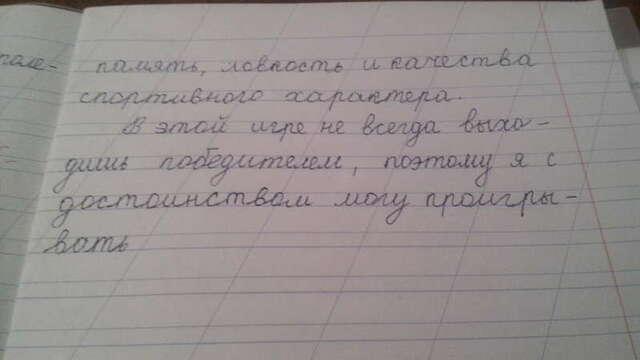 память, ловкость и качества
спортивного характера.
В этой игре не всегда выхо-
дишь победителем, поэтому я с
достоинством могу проигры-
вать